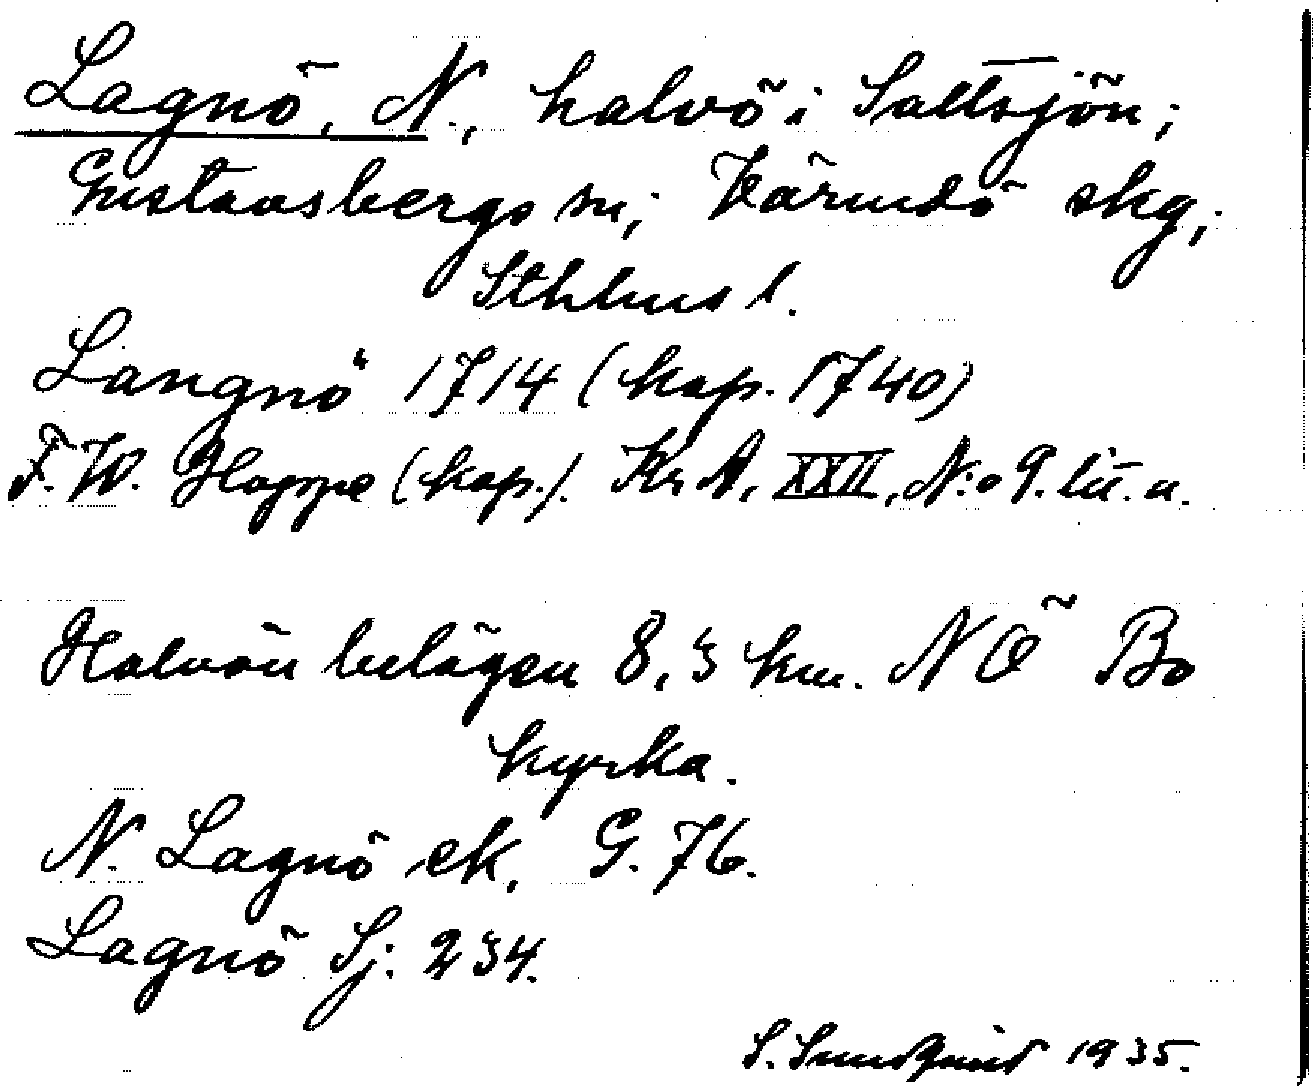 Lagnö, N., halvö i Saltsjön;
Gustavsbergs sn; Värmdö skg,
Sthlms l.
Langnö 1714 (kop. 1740)
F. W. Hoppe (kop.). Kr A, XXII, N:o 9. lit. a.
Halvön belägen 8,5 km. NÖ Bo
kyrka.
N. Lagnö ek. G. 76.
Lagnö Sj. 234.
S. Sundqvist 1935.